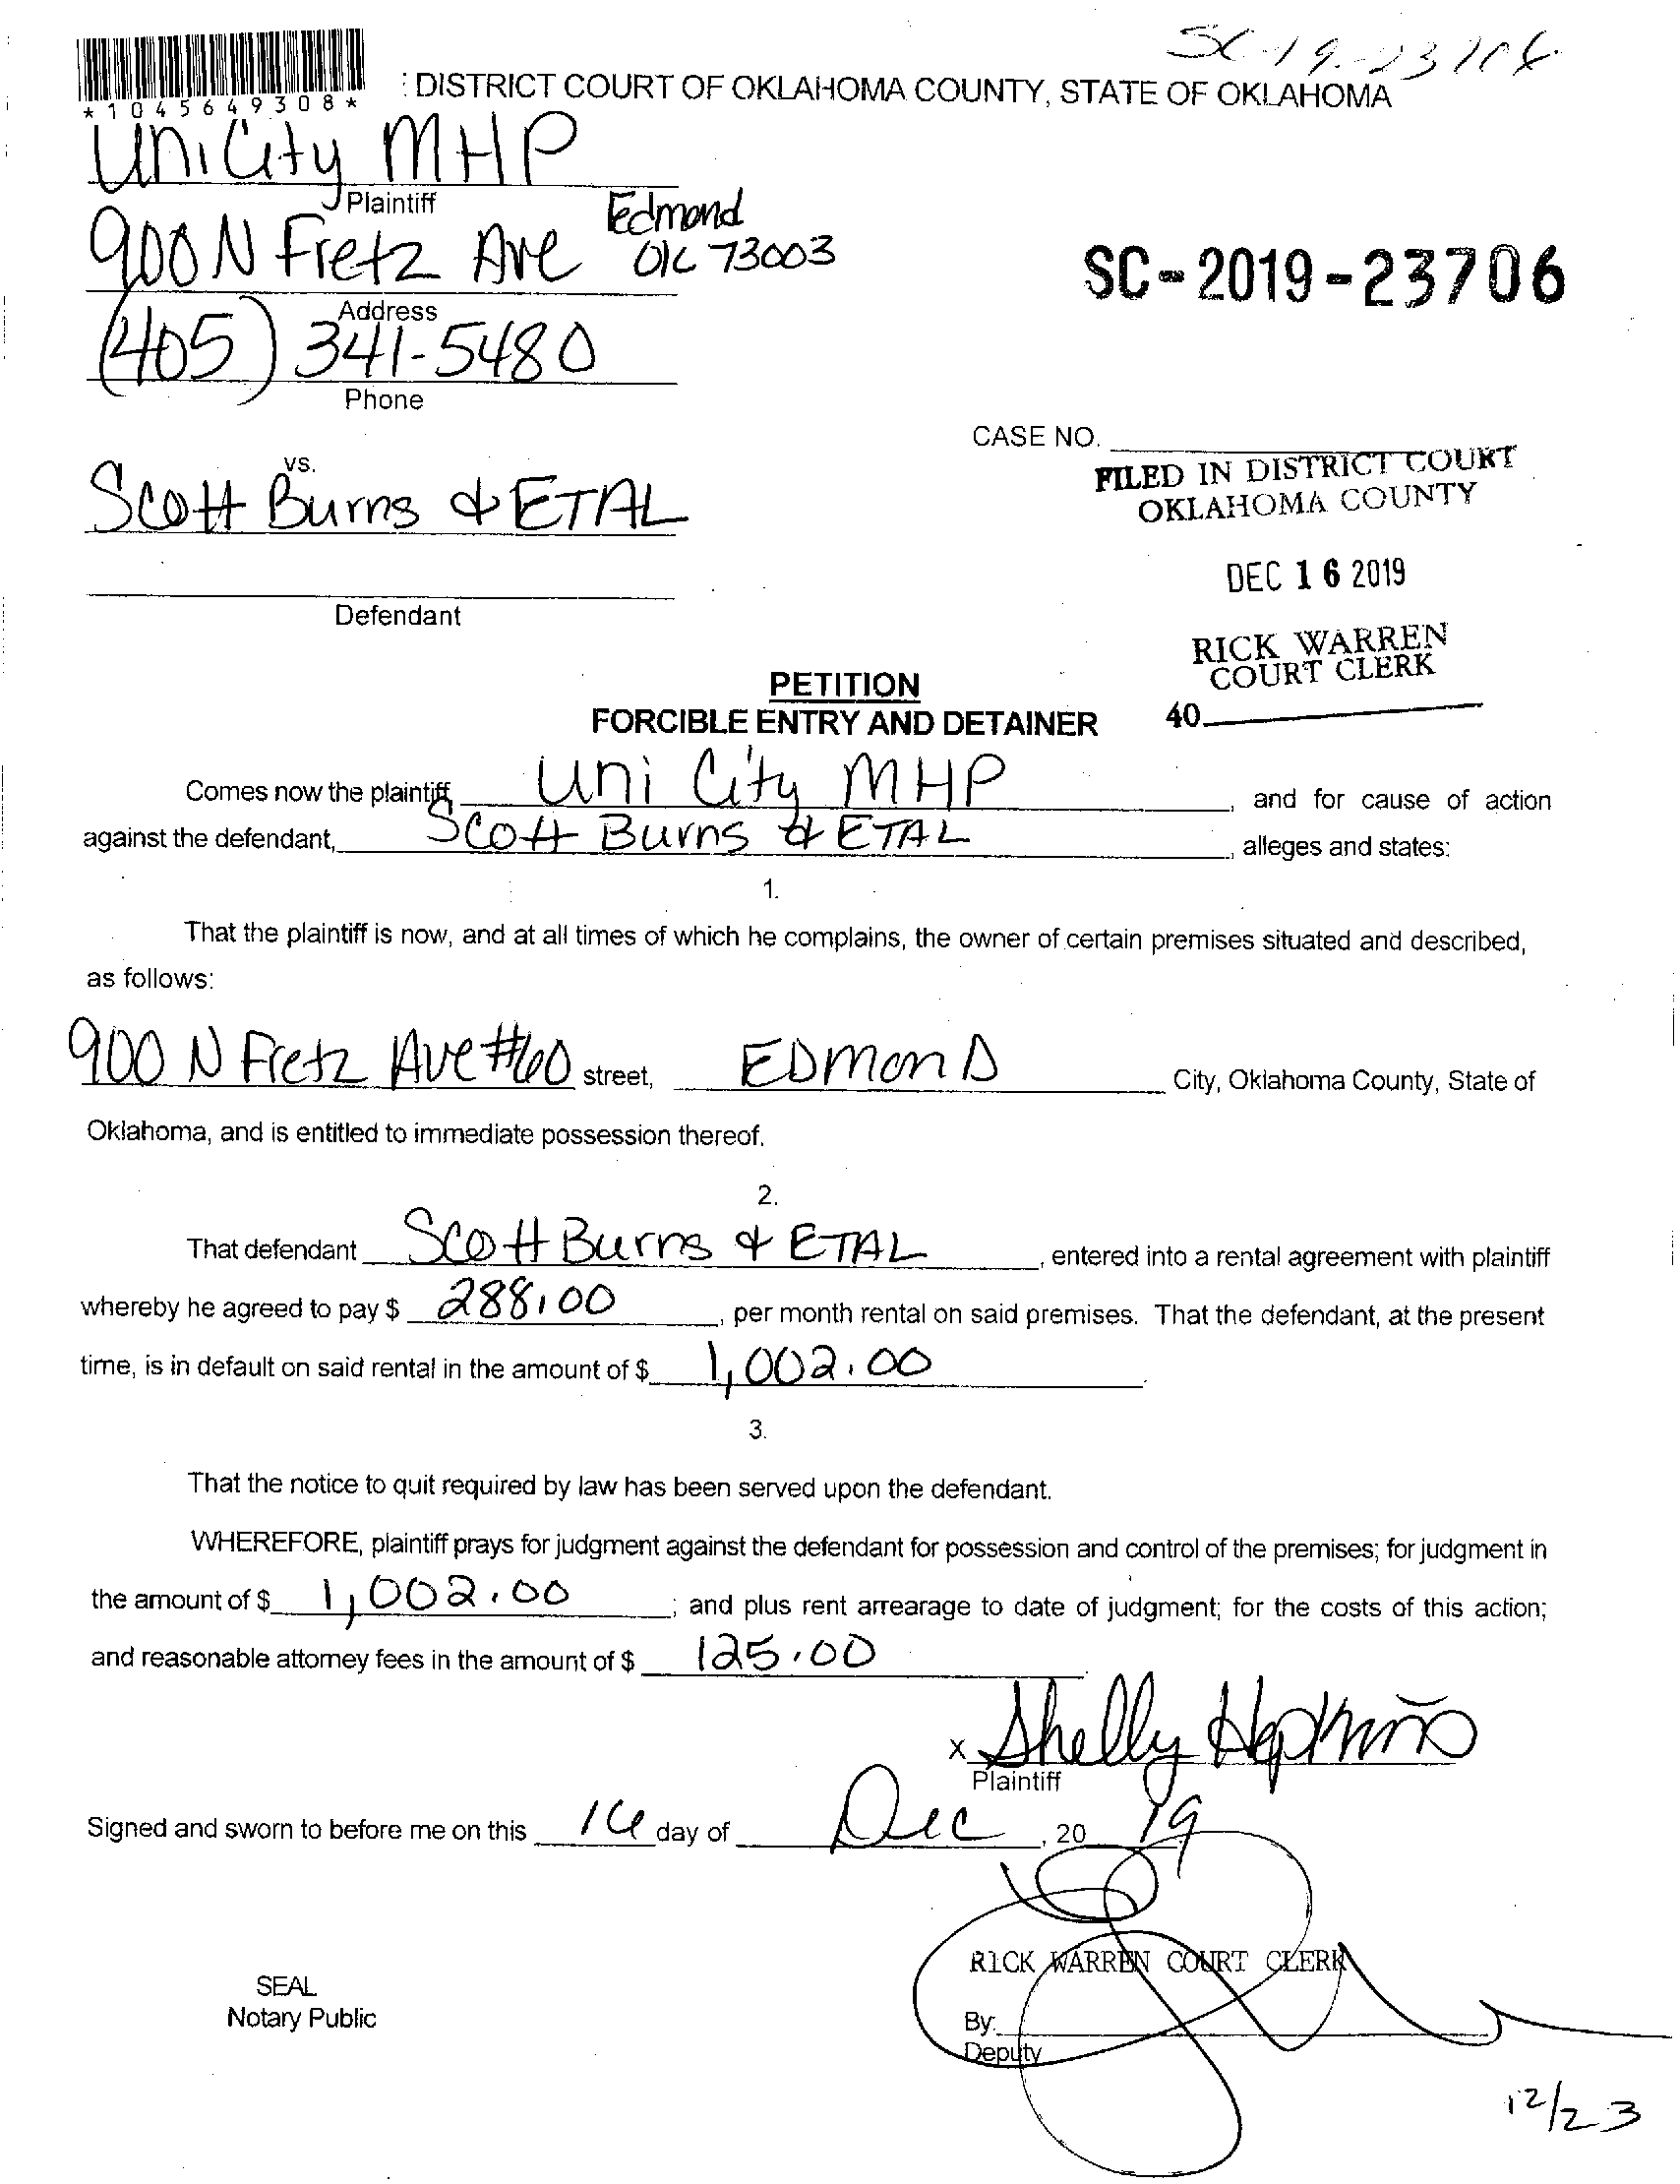 SC-19-23706
*1045649308*
: DISTRICT COURT OF OKLAHOMA COUNTY, STATE OF OKLAHOMA
Uni City MHP
Plaintiff
Edmond
900 N Fretz Ave OK 73003
Address
SC-2019-23706
(405) 341-5480
Phone
CASE NO.
vs.
Scott Burns & ETAL
FILED IN DISTRICT COURT
OKLAHOMA COUNTY
DEC 16 2019
Defendant
RICK WARREN
COURT CLERK
40
PETITION
FORCIBLE ENTRY AND DETAINER
Comes now the plaintiff Uni City MHP, and for cause of action
against the defendant, Scott Burns & ETAL, alleges and states:
1.
That the plaintiff is now, and at all times of which he complains, the owner of certain premises situated and described,
as follows:
900 N Fretz Ave #60 street, EDmonD City, Oklahoma County, State of
Oklahoma, and is entitled to immediate possession thereof.
2.
That defendant Scott Burns & ETAL, entered into a rental agreement with plaintiff
whereby he agreed to pay $ 288.00, per month rental on said premises. That the defendant, at the present
time, is in default on said rental in the amount of $ 1,002.00.
3.
That the notice to quit required by law has been served upon the defendant.
WHEREFORE, plaintiff prays for judgment against the defendant for possession and control of the premises; for judgment in
the amount of $ 1,002.00; and plus rent arrearage to date of judgment; for the costs of this action;
and reasonable attorney fees in the amount of $ 125.00.
x Shelly Hopkins
Plaintiff
Signed and sworn to before me on this 16 day of Dec, 20 19
RICK WARREN COURT CLERK
SEAL
Notary Public
By:
Deputy
12/23